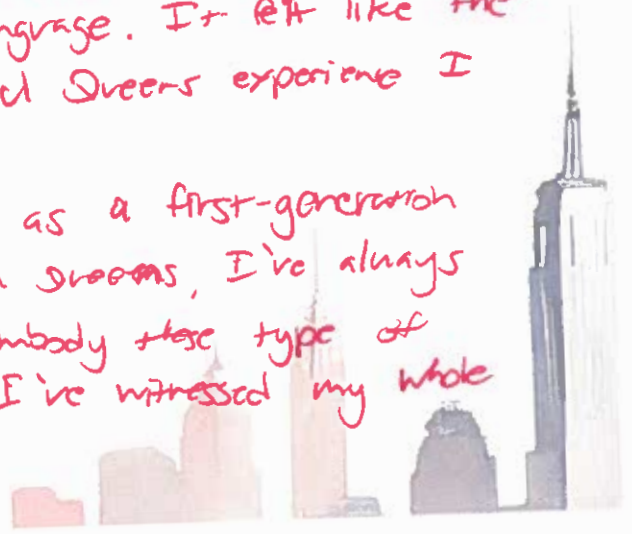 ngvage. It felt like the
d Queens experience I
as a first-generation
Queens, I've always
mbody these type of
I've witnessed my whole